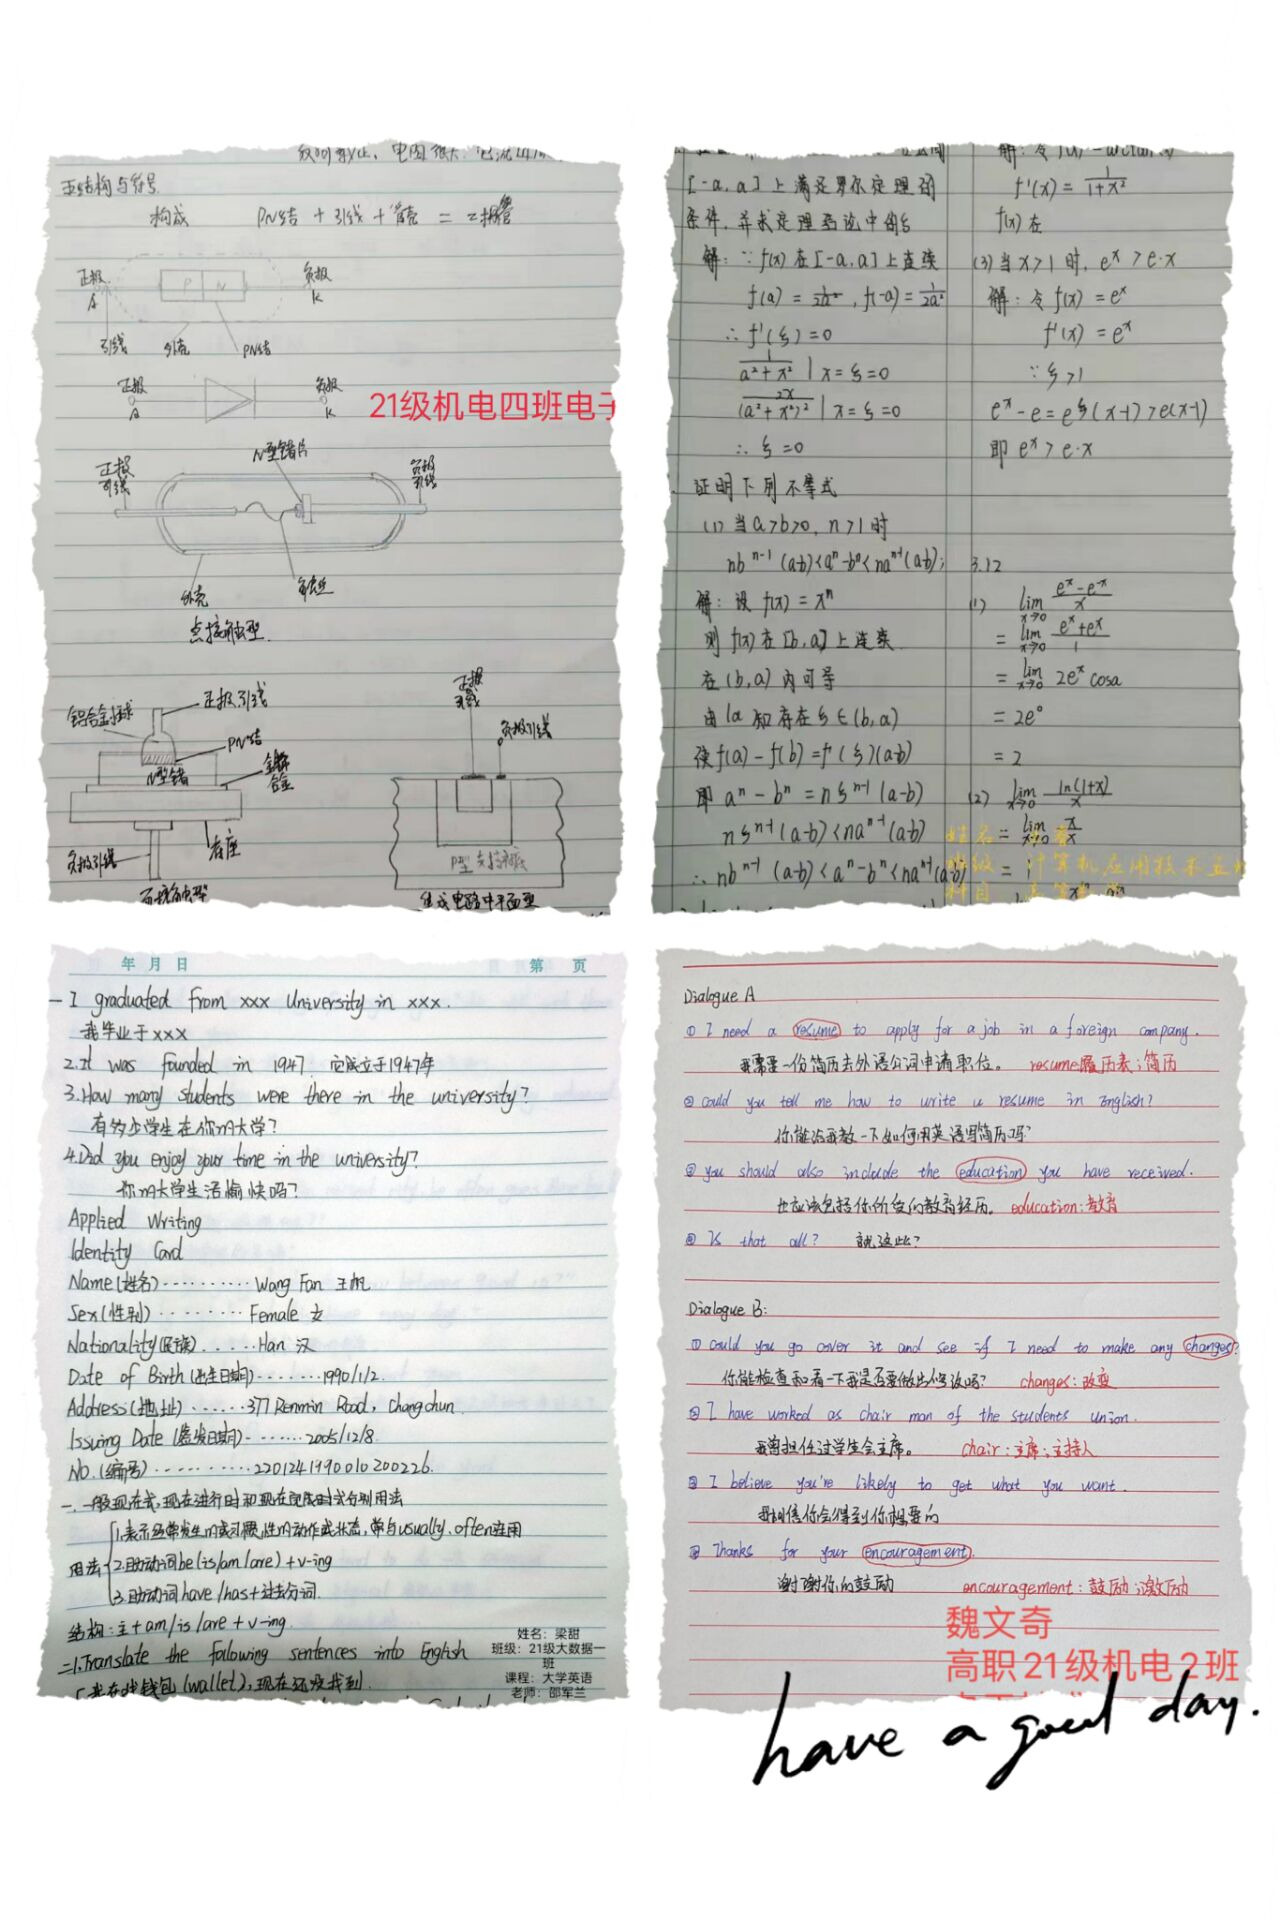 构成 PN结 + 引线 + 管壳 = 二极管
正极
A
P N
负极
K
引线
外壳
PN结
正极
A
负极
K
21级机电四班电子
N型锗片
正极
引线
负极
引线
外壳
点接触型
铝合金小球
正极引线
PN结
N型锗
金锑
合金
底座
负极引线
面接触型
正极
引线
负极引线
P型
集成电路中平面型
[-a, a] 上满足罗尔定理的
条件, 并求定理结论中的ξ
解: ∵ f(x) 在 [-a, a] 上连续
f(a) = 1/2a², f(-a) = 1/2a²
∴ f'(ξ) = 0
1/(a²+x²) | x=ξ=0
2x/(a²+x²)² | x=ξ=0
∴ ξ=0
证明下列不等式
(1) 当a>b>0, n>1时
nbⁿ⁻¹(a-b)<aⁿ-bⁿ<naⁿ⁻¹(a-b);
解: 设 f(x) = xⁿ
则 f(x) 在 [b, a] 上连续
在 (b, a) 内可导
由la知存在ξ∈(b, a)
使f(a) - f(b) = f'(ξ)(a-b)
即 aⁿ - bⁿ = nξⁿ⁻¹(a-b)
nξⁿ⁻¹(a-b)<naⁿ⁻¹(a-b)
∴ nbⁿ⁻¹(a-b)<aⁿ-bⁿ<naⁿ⁻¹(a-b)
f'(x) = 1/(1+x²)
f(x) 在
(3) 当x>1时, eˣ>e·x
解: 令 f(x) = eˣ
f'(x) = eˣ
∵ ξ>1
eˣ - e = e^ξ(x-1)>e(x-1)
即 eˣ>e·x
3.12
(1) lim x→0 (eˣ - e⁻ˣ)/x
= lim x→0 (eˣ+eˣ)/1
= lim x→0 2eˣ cosa
= 2e⁰
= 2
(2) lim x→0 ln(1+x)/x
= lim x→0 x/x
= 1
姓名:
班级: 计算机应用技术五
科目:
年 月 日 第 页
一 I graduated from xxx University in xxx.
我毕业于xxx
2.It was founded in 1947. 它成立于1947年
3.How many students were there in the university?
有多少学生在你的大学?
4.Did you enjoy your time in the university?
你的大学生活愉快吗?
Applied Writing
Identity Card
Name(姓名)..........Wang Fan 王帆
Sex(性别)........Female 女
Nationality(民族)......Han 汉
Date of Birth(出生日期)........1990/1/2.
Address(地址)......377 Renmin Road, Changchun.
Issuing Date(签发日期)........2005/12/8.
No.(编号)..........220124199001020022​6.
一. 一般现在式,现在进行时和现在完成时式分别用法
用法
1.表示经常发生的或习惯性的动作或状态,常与usually、often连用
2.助动词be(is/am/are)+v-ing
3.助动词have/has+过去分词.
结构:主+am/is/are+v-ing.
二1.Translate the following sentences into English
我在找钱包(wallet),现在还没找到.
姓名:梁甜
班级:21级大数据一
班
课程:大学英语
老师:邵军兰
Dialogue A
① I need a resume to apply for a job in a foreign company.
我需要一份简历去外语公词申请职位。 resume履历表;简历
② Could you tell me how to write a resume in English?
你能法我教一下如何用英语写简历吗?
③ You should also include the education you have received.
也应该包括你所受的教育经历. education:教育
④ Is that all? 就这些?
Dialogue B:
① Could you go over it and see if I need to make any changes?
你能检查和看一下我是否要做出修改吗? changes:改变
② I have worked as chair man of the students union.
我曾担任过学生会主席。 chair:主席;主持人
③ I believe you're likely to get what you want.
我相信你会得到你想要的
④ Thanks for your encouragement.
谢谢你的鼓励 encouragement:鼓励;激励
魏文奇
高职21级机电2班
have a good day.